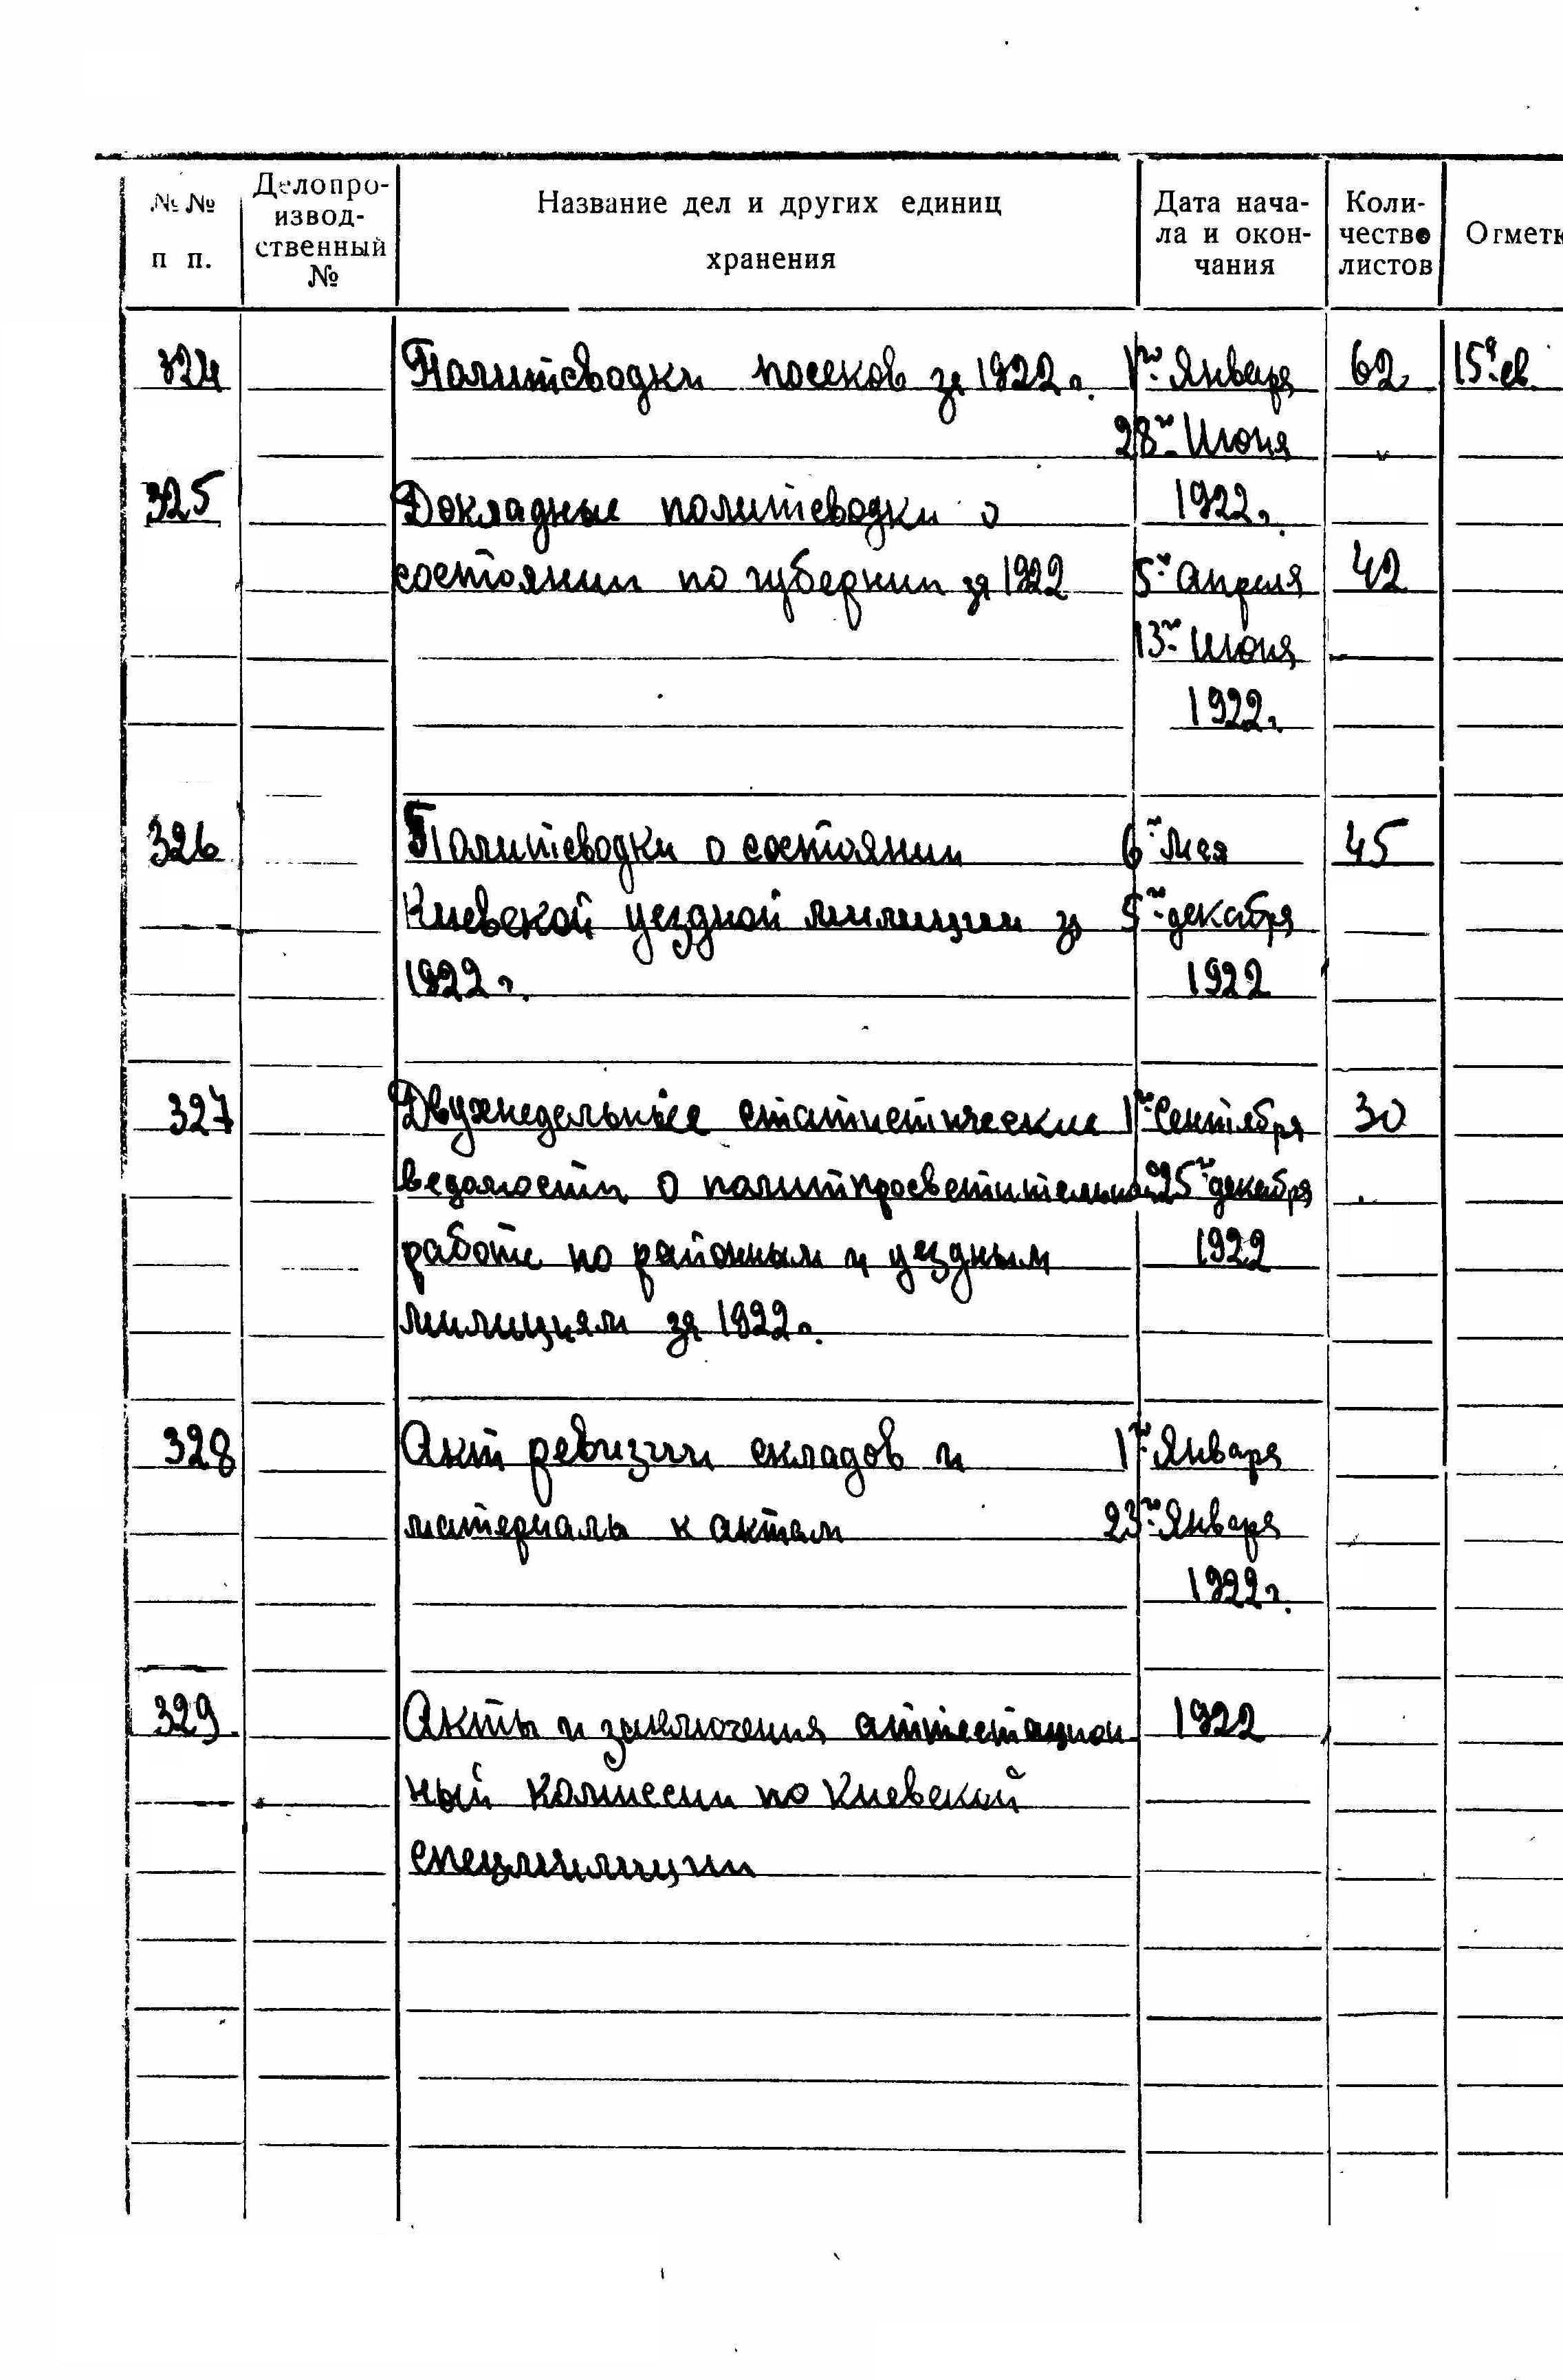 № № п п.
Делопро-
извод-
ственный
№
Название дел и других единиц
хранения
Дата нача-
ла и окон-
чания
Коли-
чество
листов
Отметк
324 Политсводки за 1922 г. 1го Января 62
28го Июня
325 Докладные политсводки о 1922 г.
состоянии по губернии за 1922 5го Апреля 42
13го Июня
1922 г.
326 Политсводки о состоянии 6го Мая 45
Киевской уездной милиции за 5го декабря
1922 г. 1922
327 Двухнедельные статистические 1го Сентября 30
ведомости о политпросветительной 25го декабря
работе по районным и уездным 1922
милициям за 1922 г.
328 Акт ревизии складов и 1го Января
материалы к актам 23го Января
1922 г.
329 Акты и заключения аттестацион 1922
ный комиссии по Киевской
спецмилиции